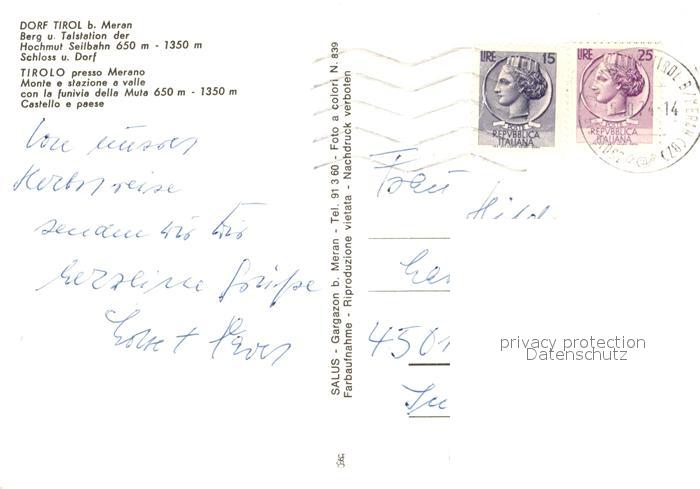 DORF TIROL b. Meran
Berg u. Talstation der
Hochmut Seilbahn 650 m - 1350 m
Schloss u. Dorf
TIROLO presso Merano
Monte e stazione a valle
con la funivia della Muta 650 m - 1350 m
Castello e paese
Von unserer
Herbstreise
senden wir Dir
herzliche Grüße
SALUS - Gargazon b. Meran - Tel. 91 3 60 - Foto a colori N. 839
Farbaufnahme - Riproduzione vietata - Nachdruck verboten
LIRE 15
POSTE
REPVBBLICA
ITALIANA
LIRE 25
POSTE
REPVBBLICA
ITALIANA
Frau
4501
privacy protection
Datenschutz